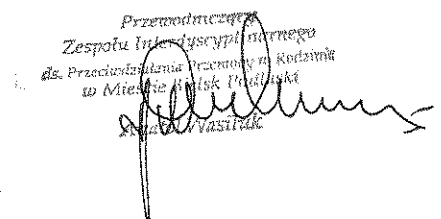 Przewodniczący
Zespołu Interdyscyplinarnego
ds. Przeciwdziałania Przemocy w Rodzinie
w Mieście Bielsk Podlaski
Wasiluk